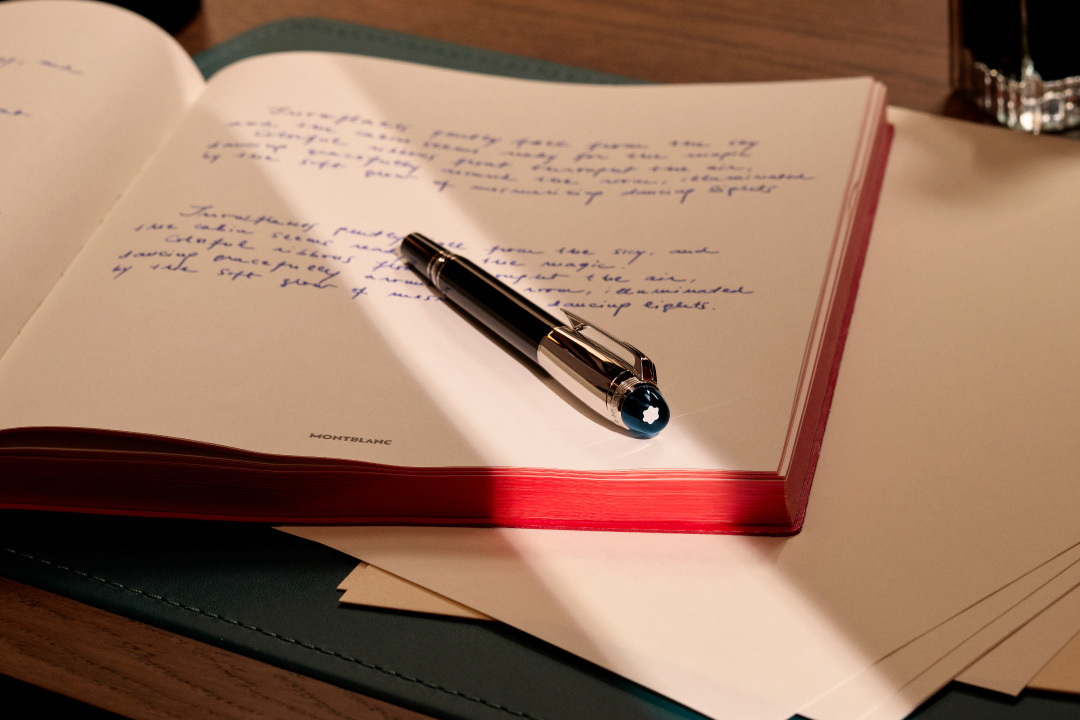 Snowflakes gently fall from the sky
and the cabin seems ready for the magic
Colorful ribbons float throught the air,
dancing gracefully around the room, illuminated
by the soft glow of mesmerizing dancing lights
Snowflakes gently fall from the sky, and
the cabin seems the magic.
Colorful ribbons the air,
dancing gracefully room, illuminated
by the soft glow of dancing lights.
MONTBLANC